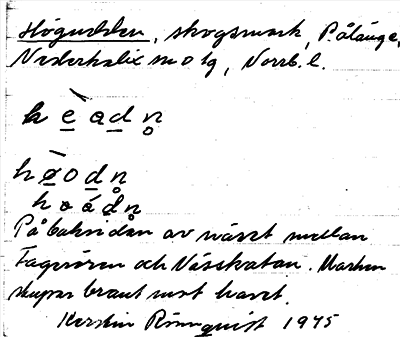 Högudden, skogsmark, Pålänge,
Nederkalix sn o tg, Norrb. l.
h e a d n
h ø o d n
h o á d n
På baksidan av näset mellan
Fagerören och Näskatan. Marken
skupar brant mot havet.
Kerstin Rönnquist 1975